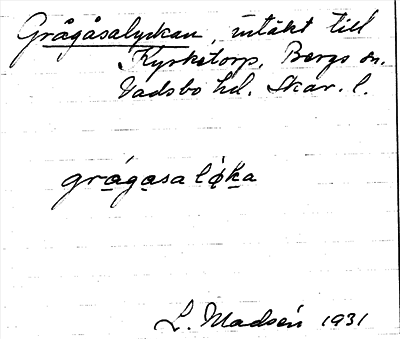 Grågåsalyckan, intäkt till
Kyrketorp, Bergs sn.
Vadsbo hd. Skar. l.
grågasalø̀ka
L. Madsén 1931